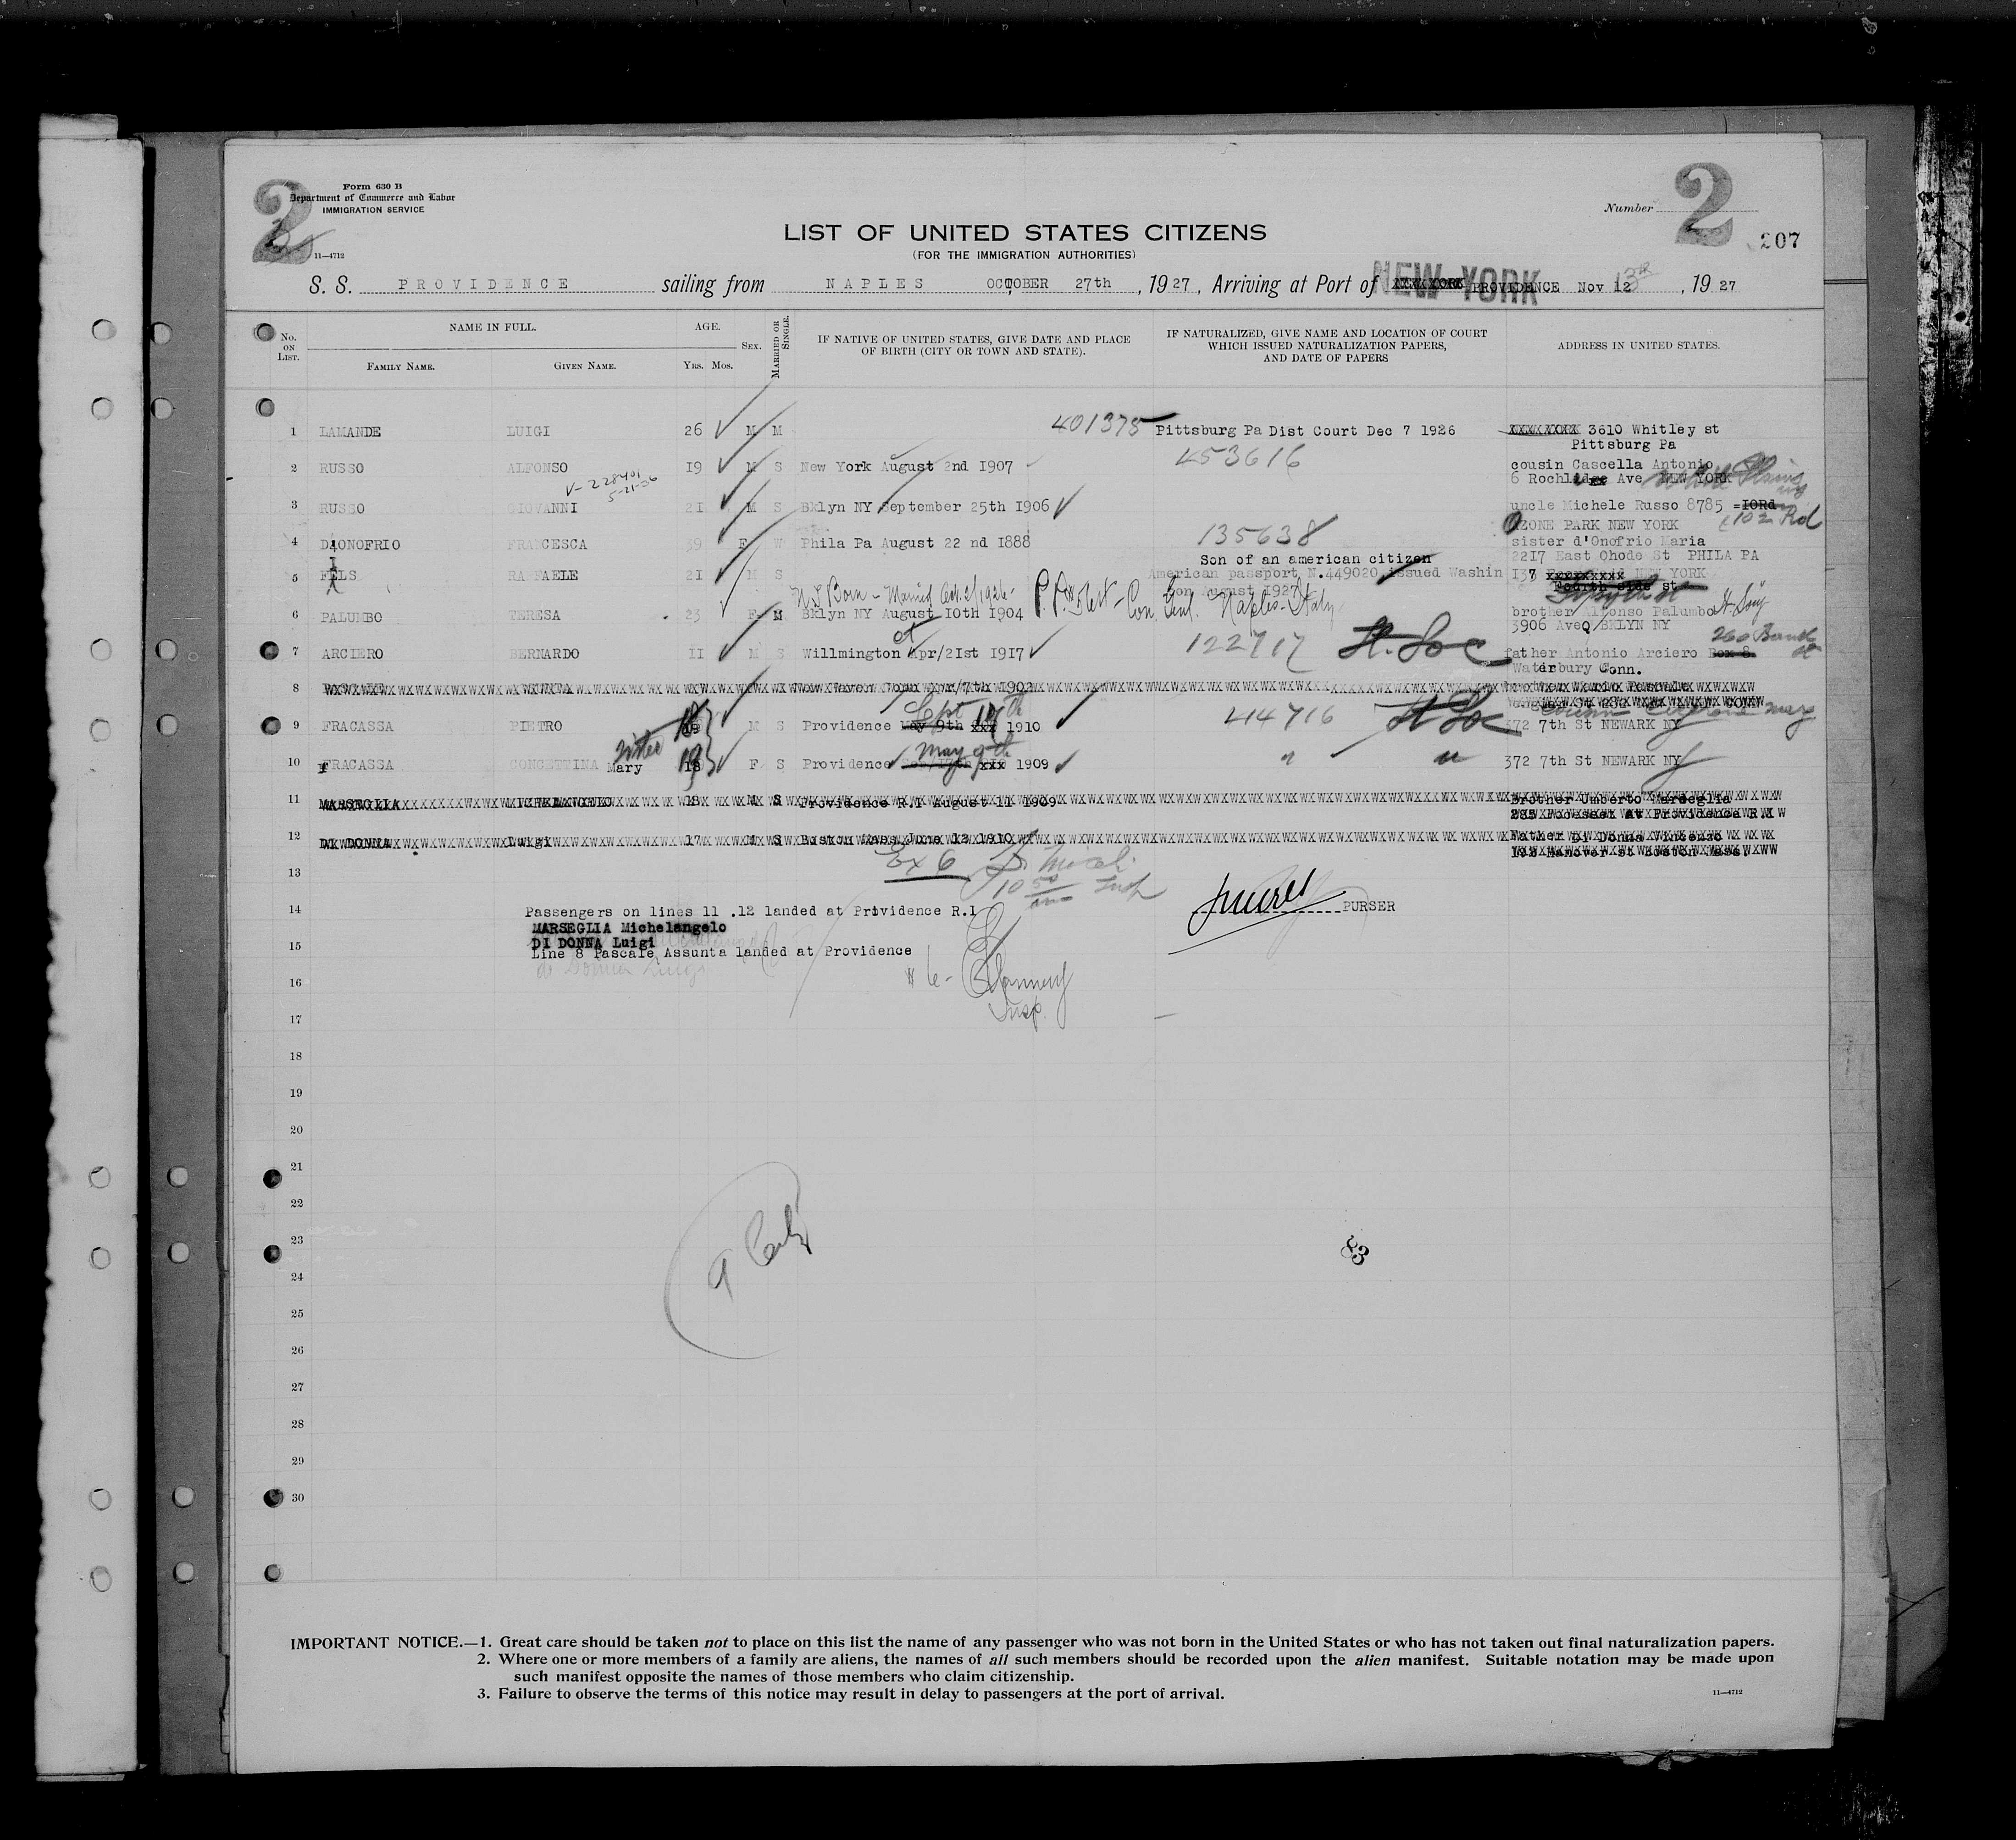 2 Form 630 B 2
Department of Commerce and Labor
IMMIGRATION SERVICE
Number
11—4712
207
LIST OF UNITED STATES CITIZENS
(FOR THE IMMIGRATION AUTHORITIES)
S. S. PROVIDENCE sailing from NAPLES OCTOBER 27th, 1927, Arriving at Port of NEW YORK PROVIDENCE Nov 12 13th, 1927
No. ON LIST. NAME IN FULL. FAMILY NAME. GIVEN NAME. AGE. YRS. MOS. SEX. MARRIED OR SINGLE. IF NATIVE OF UNITED STATES, GIVE DATE AND PLACE OF BIRTH (CITY OR TOWN AND STATE). IF NATURALIZED, GIVE NAME AND LOCATION OF COURT WHICH ISSUED NATURALIZATION PAPERS, AND DATE OF PAPERS ADDRESS IN UNITED STATES.
1 LAMANDE LUIGI 26 M M 401375 Pittsburg Pa Dist Court Dec 7 1926 3610 Whitley st
Pittsburg Pa
2 RUSSO ALFONSO 19 M S New York August 2nd 1907 453616 cousin Cascella Antonio
6 Ave NEW YORK
V-228401
5-21-56
3 RUSSO GIOVANNI 21 M S Bklyn NY September 25th 1906 uncle Michele Russo 8785 IORd 102 Rd
OZONE PARK NEW YORK
4 D'ONOFRIO FRANCESCA 39 F W Phila Pa August 22 nd 1888 135638 sister d'Onofrio Maria
2217 East Ohode St PHILA PA
Son of an american citizen
5 FELS RAFFAELE 21 M S American passport N.449020 issued Washin 137 NEW YORK
on August 1927
Fourth side st
U S Born - Married Oct. 2/1926 - Con. Genl. Naples - Italy
6 PALUMBO TERESA 23 F M Bklyn NY August 10th 1904 brother Alfonso Palumbo
3906 AveQ BKLYN NY
7 ARCIERO BERNARDO 11 M S Willmington Apr/21st 1917 122717 father Antonio Arciero Box 8 260
Waterbury Conn.
8 New Haven Conn Apr/7th 1902
9 FRACASSA PIETRO 18 M S Providence May 9th Sept 17th 1910 414716 372 7th St NEWARK NY
10 FRACASSA CONCETTINA Mary sister 18 F S Providence May 9th xxx 1909 " " 372 7th St NEWARK NY
11 MARSEGLIA MICHELANGELO 18 M S Providence R.I August 11 1909 Brother Umberto Marseglia
285 Pocasset At Providence R.I
12 DI DONNA Luigi 17 M S Boston Mass June 12 1910 Father Di Donna Vincenzo
192 Hanover st Boston Mass.
13
Ex 6
14 Passengers on lines 11 .12 landed at Providence R.I PURSER
MARSEGLIA Michelangelo
15 DI DONNA Luigi
Line 8 Pascale Assunta landed at Providence
16
Insp.
17
18
19
20
21
22
23
24
25
26
27
28
29
30
83
IMPORTANT NOTICE.—1. Great care should be taken not to place on this list the name of any passenger who was not born in the United States or who has not taken out final naturalization papers.
2. Where one or more members of a family are aliens, the names of all such members should be recorded upon the alien manifest. Suitable notation may be made upon
such manifest opposite the names of those members who claim citizenship.
3. Failure to observe the terms of this notice may result in delay to passengers at the port of arrival.
11—4712